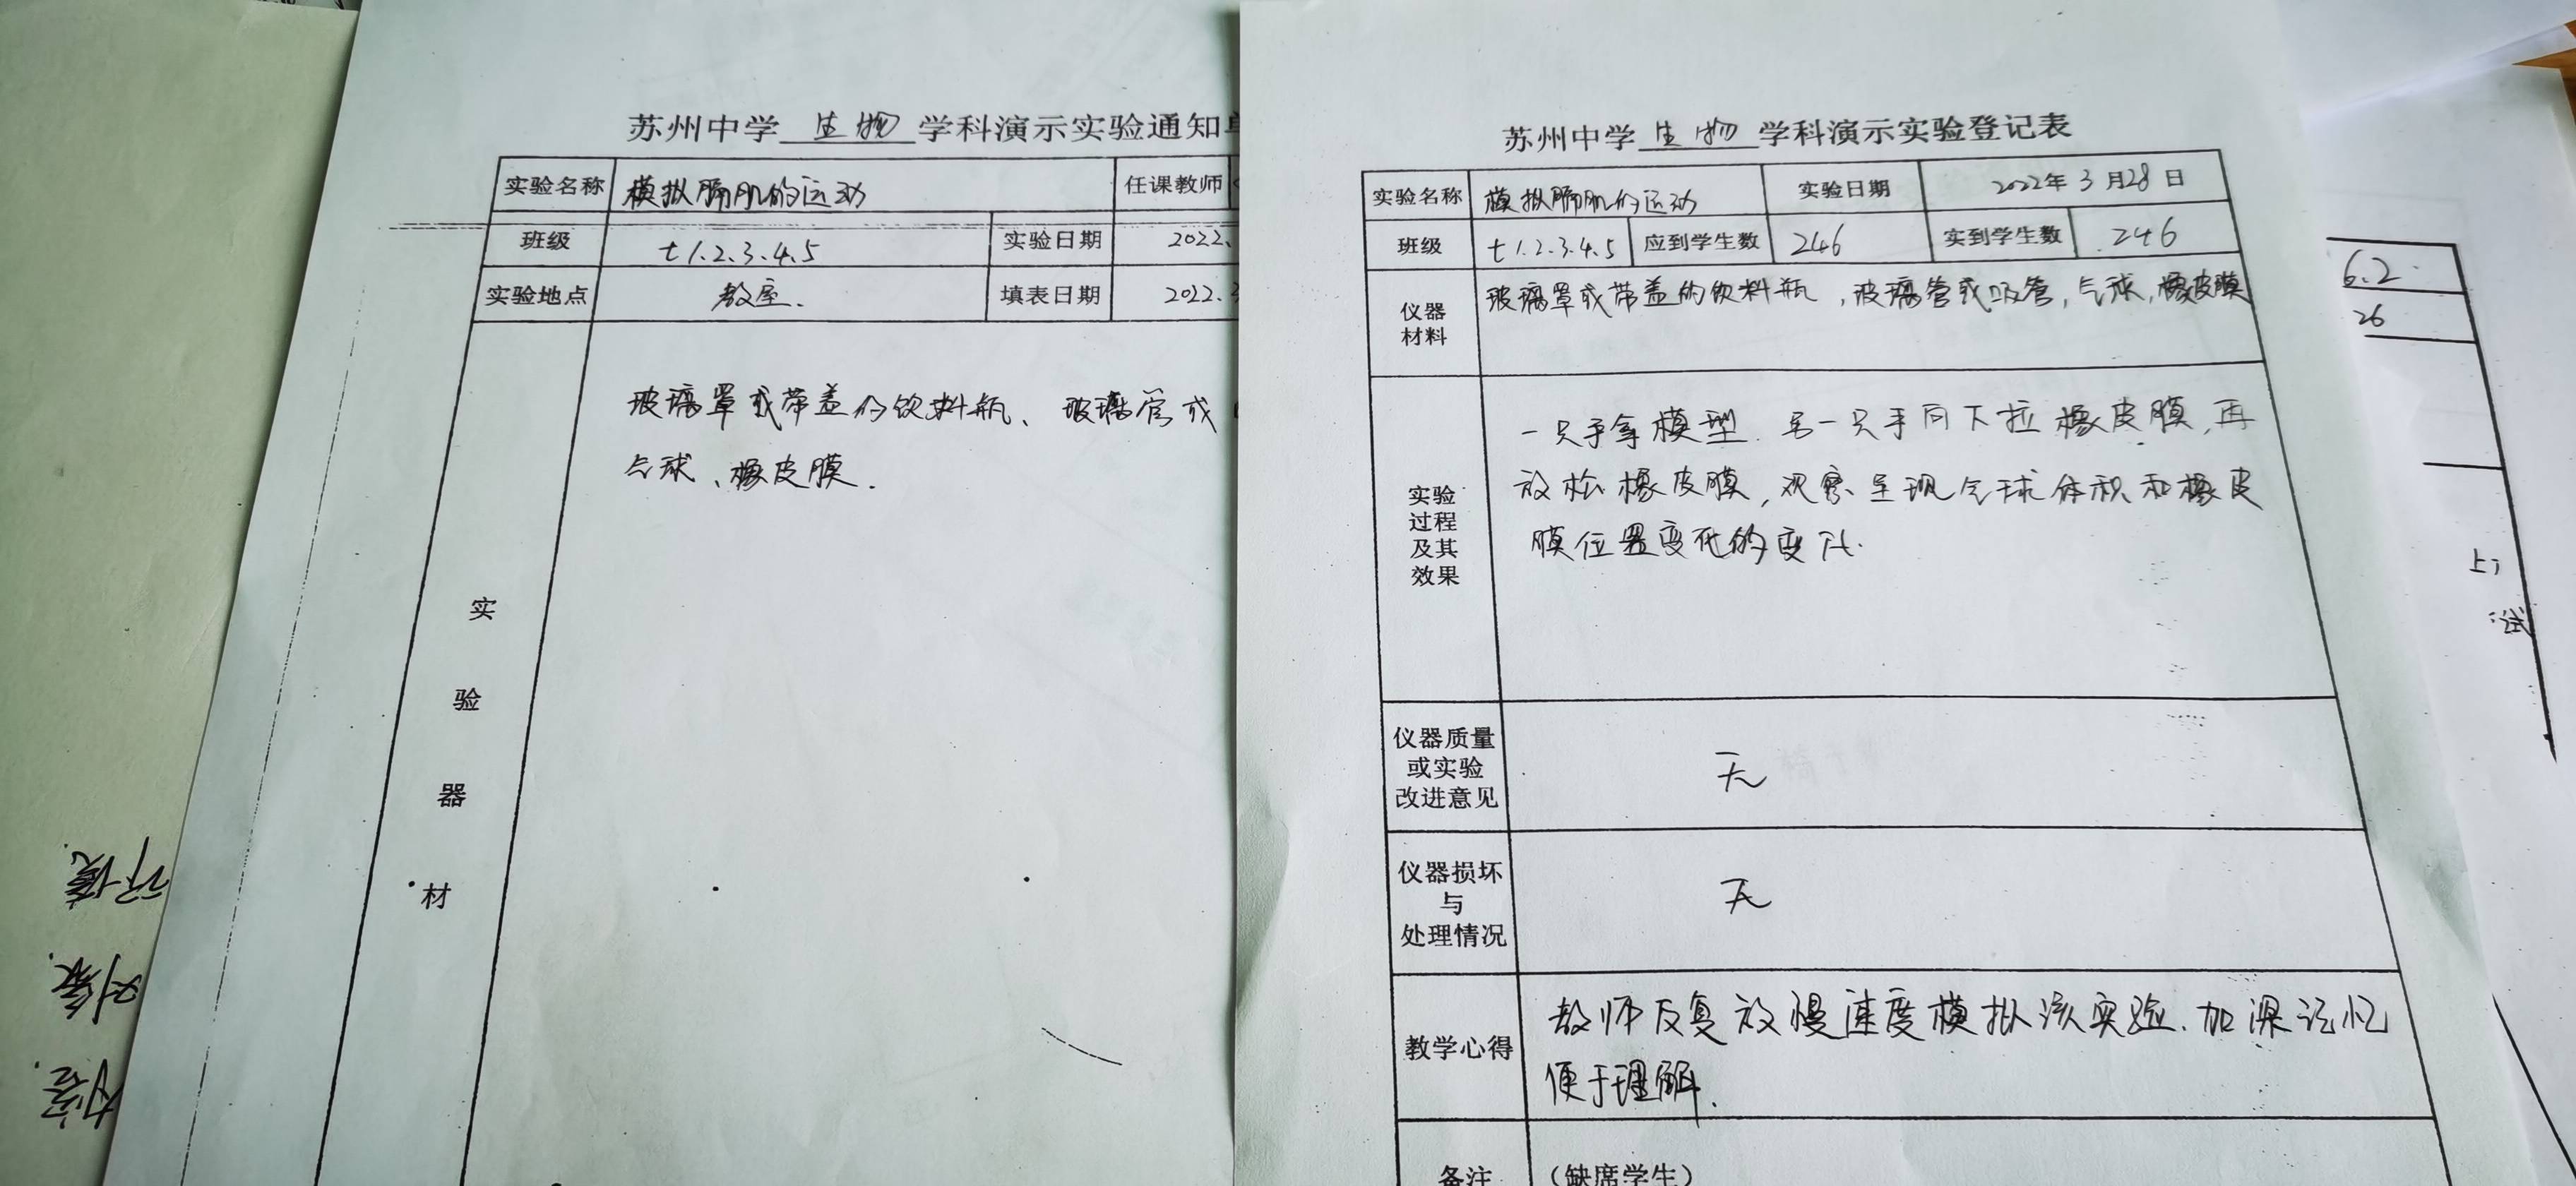 苏州中学 生物 学科演示实验通知单
实验名称 模拟膈肌的运动 任课教师
班级 七1.2.3.4.5 实验日期 2022.
实验地点 教室. 填表日期 2022.
实验器材
玻璃罩或带盖的饮料瓶、玻璃管或
气球、橡皮膜.
苏州中学 生物 学科演示实验登记表
实验名称 模拟膈肌的运动 实验日期 2022年3月28日
班级 七1.2.3.4.5 应到学生数 246 实到学生数 246
仪器
材料
玻璃罩或带盖的饮料瓶,玻璃管或吸管,气球,橡皮膜
实验
过程
及其
效果
一只手拿模型.另一只手向下拉橡皮膜,再
放松橡皮膜,观察呈现气球体积和橡皮
膜位置变化的变化.
仪器质量
或实验
改进意见
无
仪器损坏
与
处理情况
无
教学心得
教师反复放慢速度模拟该实验.加深记忆
便于理解.
备注 (缺席学生)
6.2
26
试